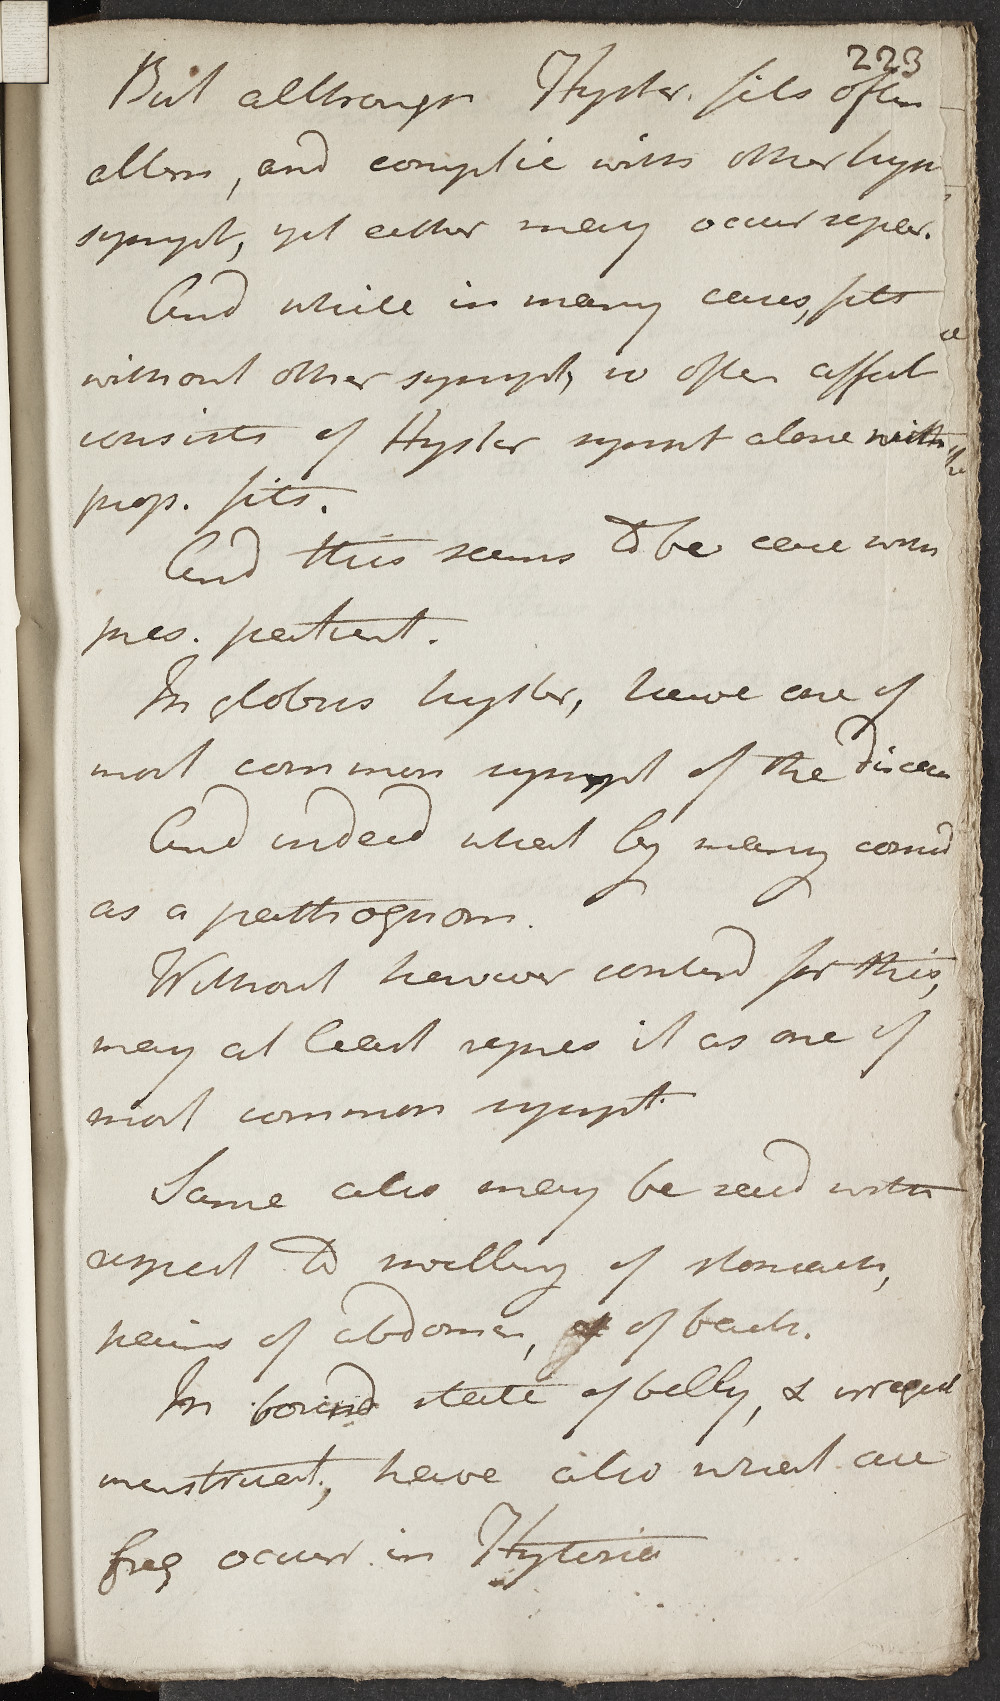 223
But although Hyster. fits often
altern, and complic with other hyst
sympt, yet either may occur separ.
And while in many cases, fits
without other sympt, so often affect
consists of Hyster sympt alone with
prop. fits.
And this seems to be case with
pres. patient.
In globus hyster, have one of
most common sympt of the disease
And indeed what by many consid
as a pathognom.
Without however contend for this,
may at least repres it as one of
most common sympt.
Same also may be said with
respect to swelling of stomach,
pains of abdomen, of back.
In bound state of belly, & irregul
menstruat, have also what are
freq occurr in Hysteria